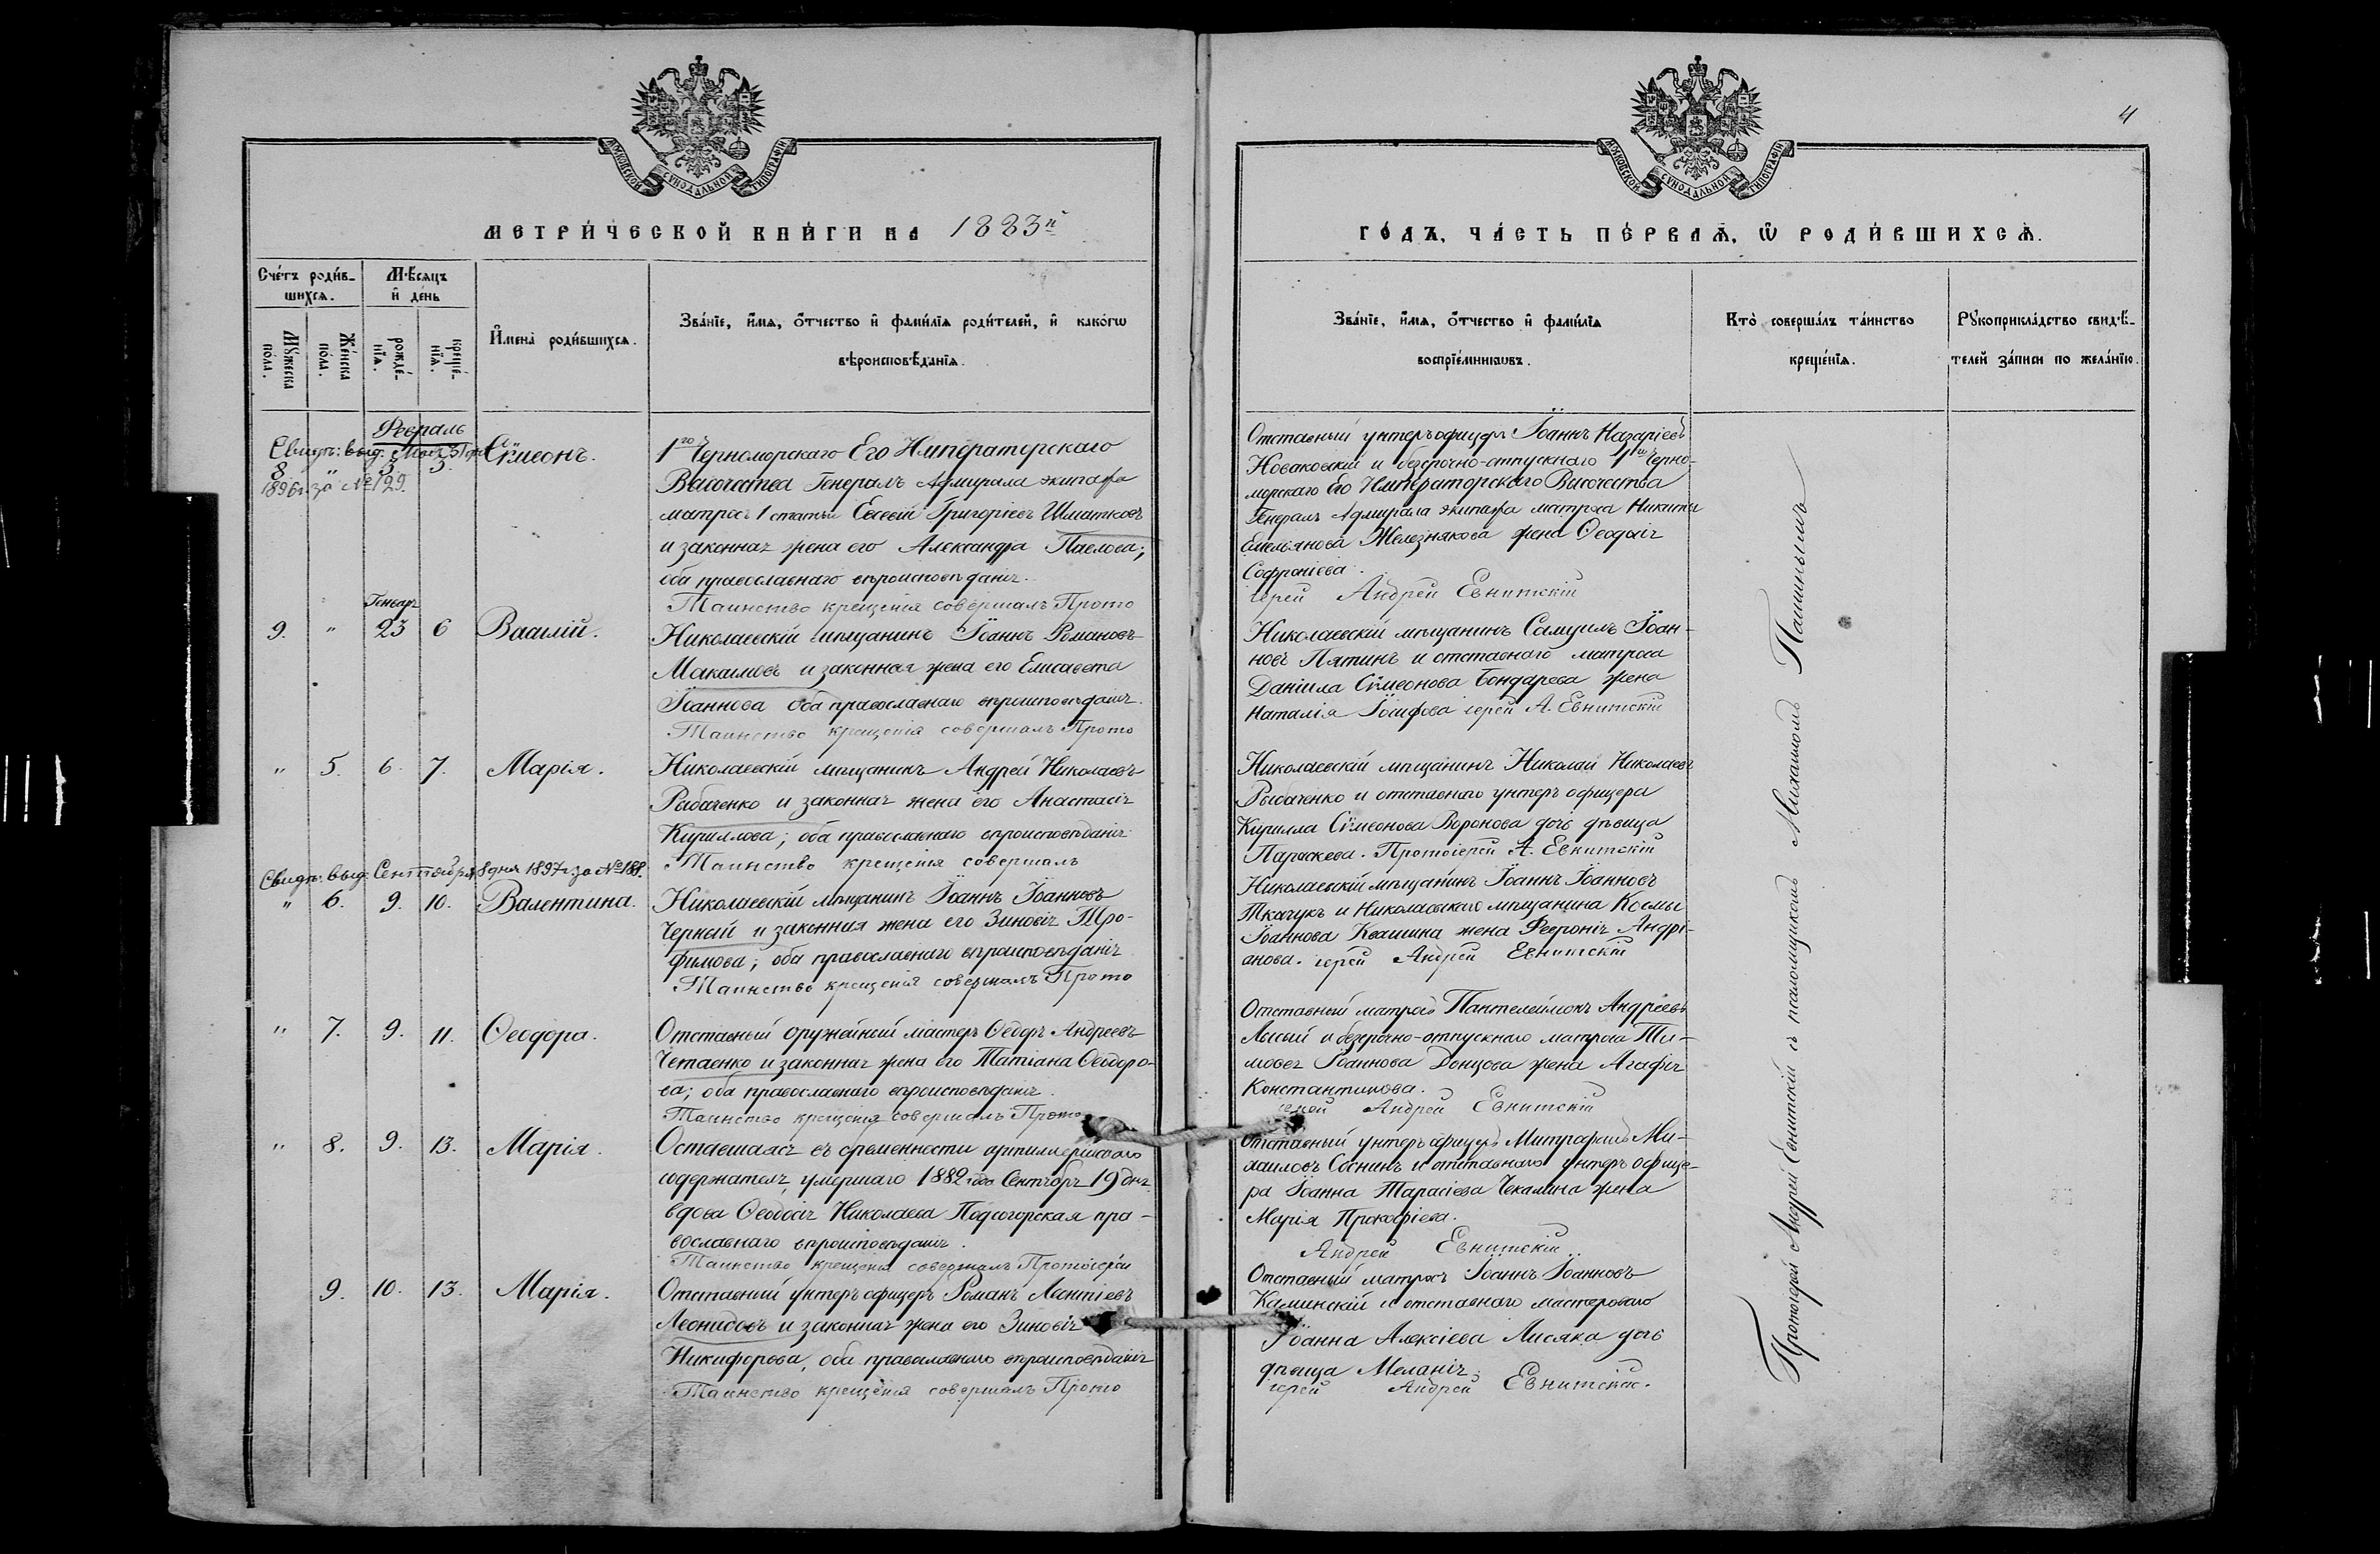 4
МОСКОВСКОЙ СѴНОДАЛЬНОЙ ТИПОГРАФІИ
МОСКОВСКОЙ СѴНОДАЛЬНОЙ ТИПОГРАФІИ
МЕТРИ́ЧЕСКОЙ КНИ́ГИ НА 1883й
ГО́ДЪ, ЧА́СТЬ ПЕ́РВАѦ, Ѡ҆ РОДИ́ВШИХСѦ.
Сче́тъ роди́в-
шихсѧ.
Мѣ́сяцъ
и҆ де́нь
Мꙋ́жеска по́ла.
Же́нска по́ла.
рожде́-
нїѧ.
креще́-
нїѧ.
И҆мена̀ роди́вшихсѧ.
Зва́нїе, и҆́мѧ, ѻ҆́тчество и҆ фами́лїѧ роди́телей, и҆ како́гѡ
вѣроисповѣ́данїѧ.
Зва́нїе, и҆́мѧ, ѻ҆́тчество и҆ фами́лїѧ
воспрїе́мникѡвъ.
Кто̀ соверша́лъ та́инство
креще́нїѧ.
Рꙋкоприкла́дство свидѣ́-
телей за́писи по жела́нїю.
Февраль
Свидѣт: выд. Мая 31 дня
8. " 3. 5. Сѵмеонъ.
1896 г. за № 129.
1го Черноморскаго Его Императорскаго
Высочества Генералъ Адмирала экипажа
матросъ 1 статьи Евсевій Григоріевъ Шматковъ
и законная жена его Александра Павлова;
оба православнаго вѣроисповѣданія.
Таинство крещенія совершалъ Прото
Отставный унтеръ офицеръ Іоаннъ Назаріевъ
Новаковскій и безсрочно-отпускнаго 1го Черно-
морскаго Его Императорскаго Высочества
Генералъ Адмирала экипажа матроса Никиты
Емельянова Железнякова жена Ѳеодосія
Софроніева.
іерей Андрей Евнитскій
Генварь
9. " 23 6 Василій.
Николаевскій мѣщанинъ Іоаннъ Романовъ
Макаловъ и законная жена его Елисавета
Іоаннова оба православнаго вѣроисповѣданія.
Таинство крещенія совершалъ Прото
Николаевскій мѣщанинъ Самуилъ Іоан-
новъ Пятинъ и отставнаго матроса
Даніила Сѵмеонова Бондарева жена
Наталія Іосифова іерей А. Евнитскій
" 5. 6. 7. Марія.
Николаевскій мѣщанинъ Андрей Николаевъ
Рыбаченко и законная жена его Анастасія
Кириллова; оба православнаго вѣроисповѣданія
Таинство крещенія совершалъ
Николаевскій мѣщанинъ Николай Николаевъ
Рыбаченко и отставнаго унтеръ офицера
Кирилла Сѵмеонова Воронова дочь дѣвица
Параскева. Протоіерей А. Евнитскій
Свидѣт: выд. Сентября 8 дня 1897 г. за № 188.
" 6. 9. 10. Валентина.
Николаевскій мѣщанинъ Іоаннъ Іоанновъ
Черный и законная жена его Зиновія Тро-
фимова; оба православнаго вѣроисповѣданія
Таинство крещенія совершалъ Прото
Николаевскій мѣщанинъ Іоаннъ Іоанновъ
Ткачукъ и Николаевскаго мѣщанина Космы
Іоаннова Квашина жена Февронія Андрі-
анова. іерей Андрей Евнитскій
" 7. 9. 11. Ѳеодора.
Отставный оружейный мастеръ Ѳедоръ Андреевъ
Четаенко и законная жена его Татіана Ѳеодоро-
ва; оба православнаго вѣроисповѣданія.
Таинство крещенія совершалъ Прото
Отставный матросъ Пантелеймонъ Андріевъ
Лысый и безсрочно-отпускнаго матроса Ти-
мовея Іоаннова Донцова жена Агафія
Константинова.
іерей Андрей Евнитскій
" 8. 9. 13. Марія.
Оставшаяся въ беременности артиллерійскаго
содержателя, умершаго 1882 года Сентября 19 дня
вдова Ѳеодосія Николаева Подгорская пра-
вославнаго вѣроисповѣданія.
Таинство крещенія совершалъ Протоіерей
Отставный унтеръ офицеръ Митрофанъ Ми-
хаиловъ Соснинъ и отставнаго унтеръ офице-
ра Іоанна Тарасіева Чекалина жена
Марія Прокофіева.
Андрей Евнитскій.
9. 10. 13. Марія.
Отставный унтеръ офицеръ Романъ Леонтіевъ
Леонидовъ и законная жена его Зиновія
Никифорова, оба православнаго вѣроисповѣданія
Таинство крещенія совершалъ Прото
Отставный матросъ Іоаннъ Іоанновъ
Каминскій и отставнаго мастероваго
Іоанна Алексіева Лисяка дочь
дѣвица Меланія.
іерей Андрей Евнитскій.
Протоіерей Андрей Евнитскій съ псаломщикомъ Михаиломъ Пашинымъ